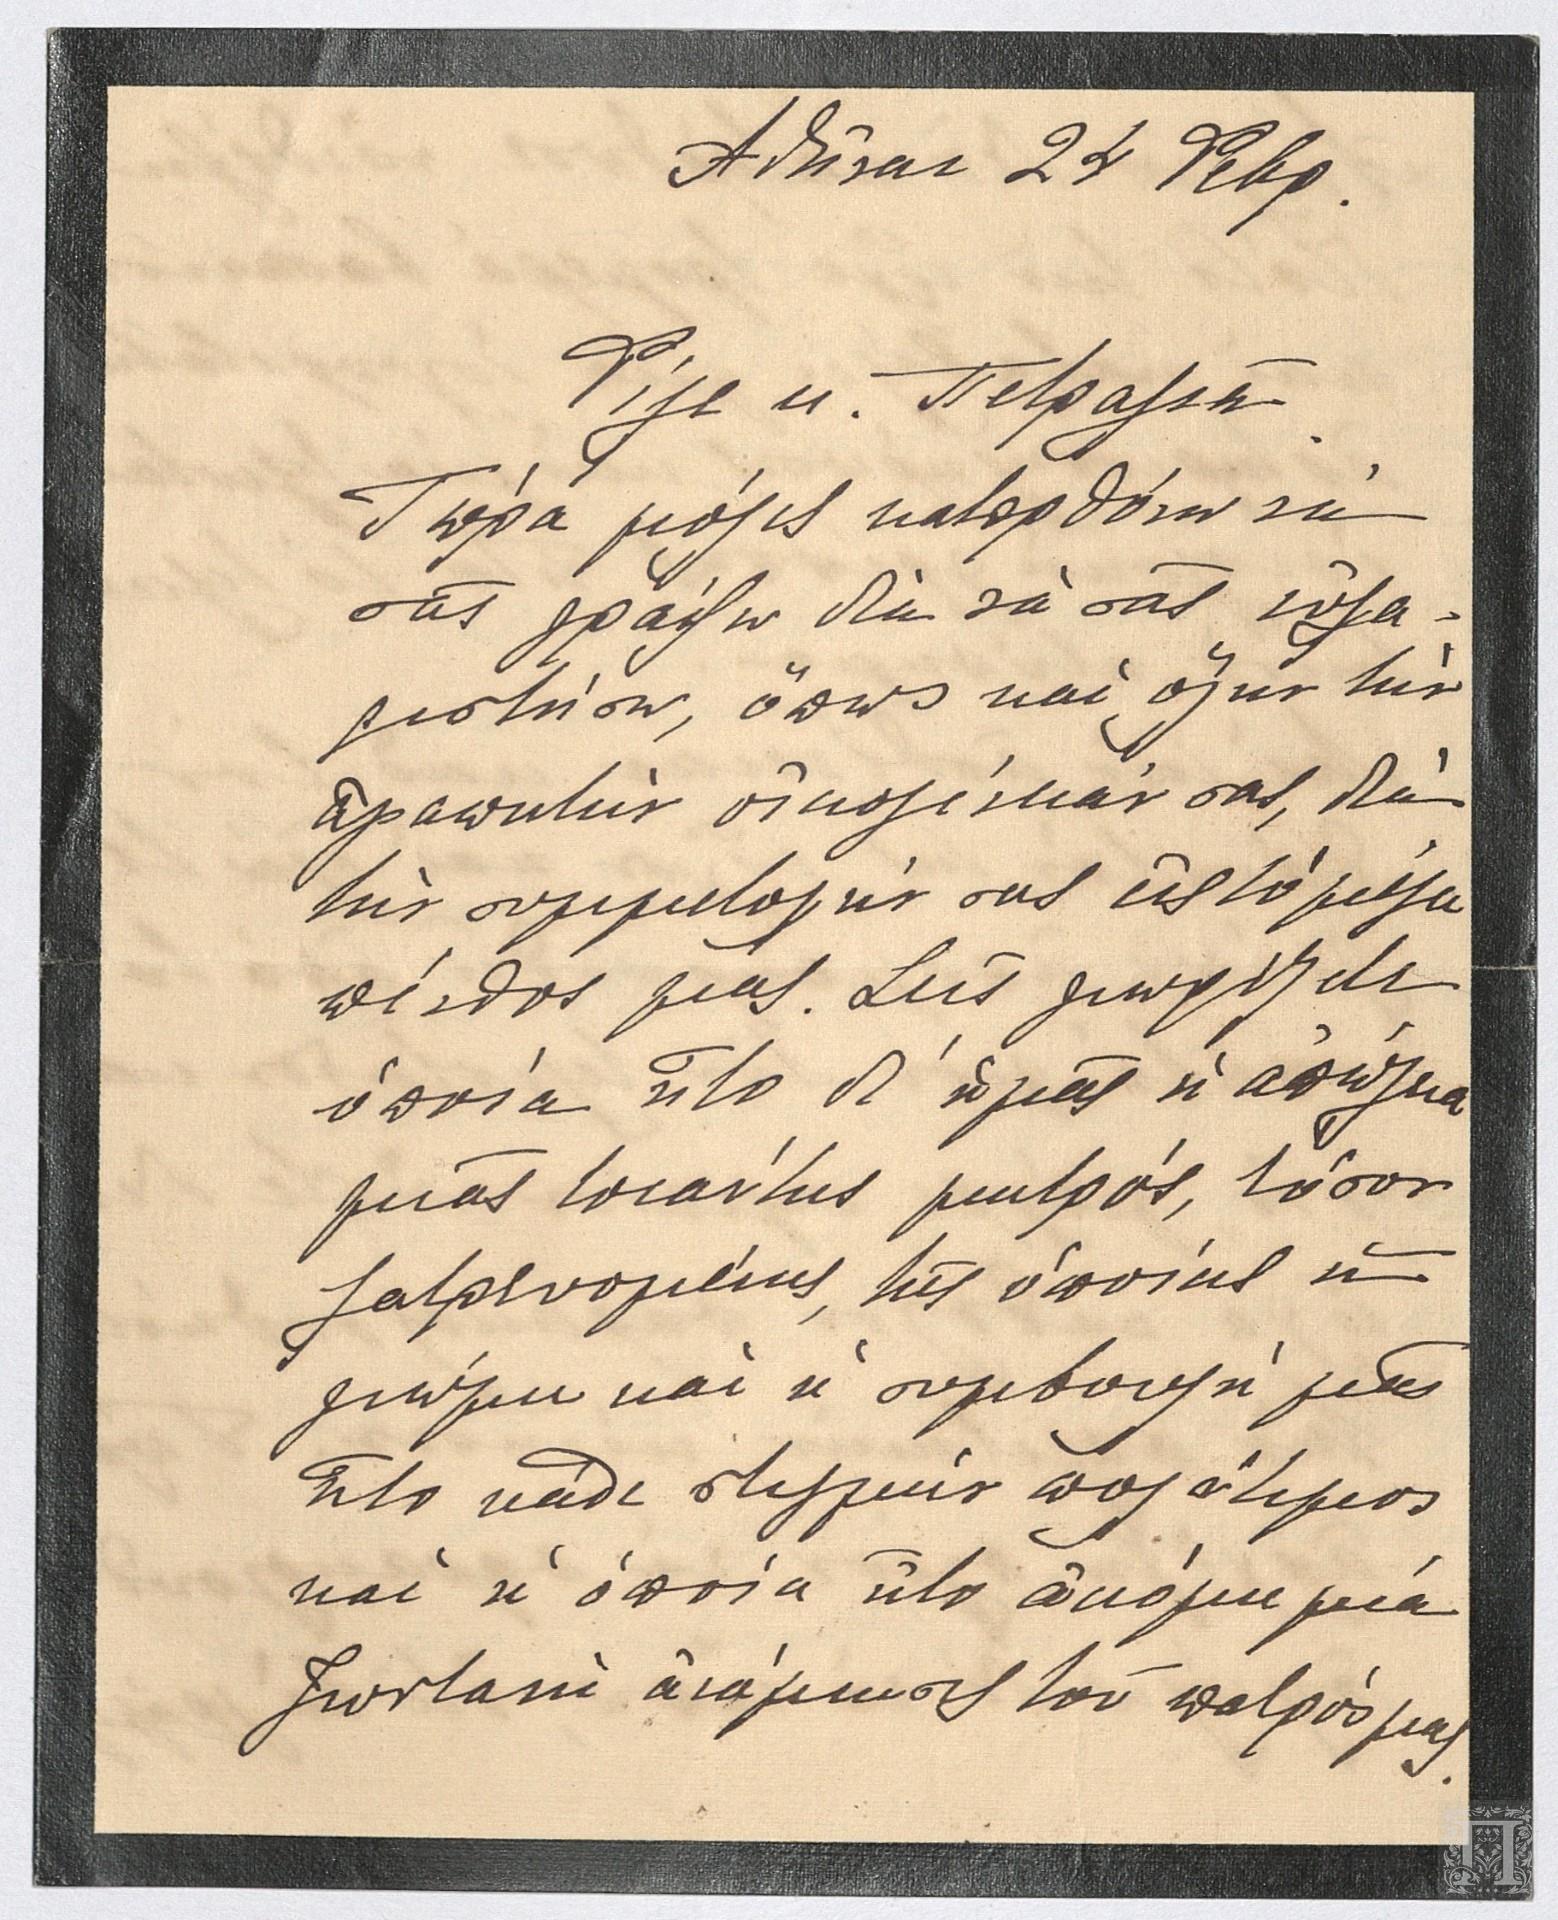 Ἀθῆναι 24 Φεβρ.
Φίλε κ. Πετραλιᾶ.
Τώρα μόλις κατορθώνω νὰ
σᾶς γράψω διὰ νὰ σᾶς εὐχα-
ριστήσω, ὅπως καὶ ὅλην τὴν
ἀγαπητὴν οἰκογένειάν σας, διὰ
τὴν συμμετοχήν σας εἰς τὸ μέγα
πένθος μας. Σεῖς γνωρίζετε
ὁποία ἦτο δι' ἡμᾶς ἡ ἀπώλεια
μιᾶς τοιαύτης μητρός, τόσον
λατρευομένης, τῆς ὁποίας ἡ
γνώμη καὶ ἡ συμβουλή μᾶς
ἦτο κάθε στιγμὴν πολύτιμος
καὶ ἡ ὁποία ἦτο ἀκόμη μιὰ
ζωντανὴ ἀνάμνησις τοῦ πατρός μας.